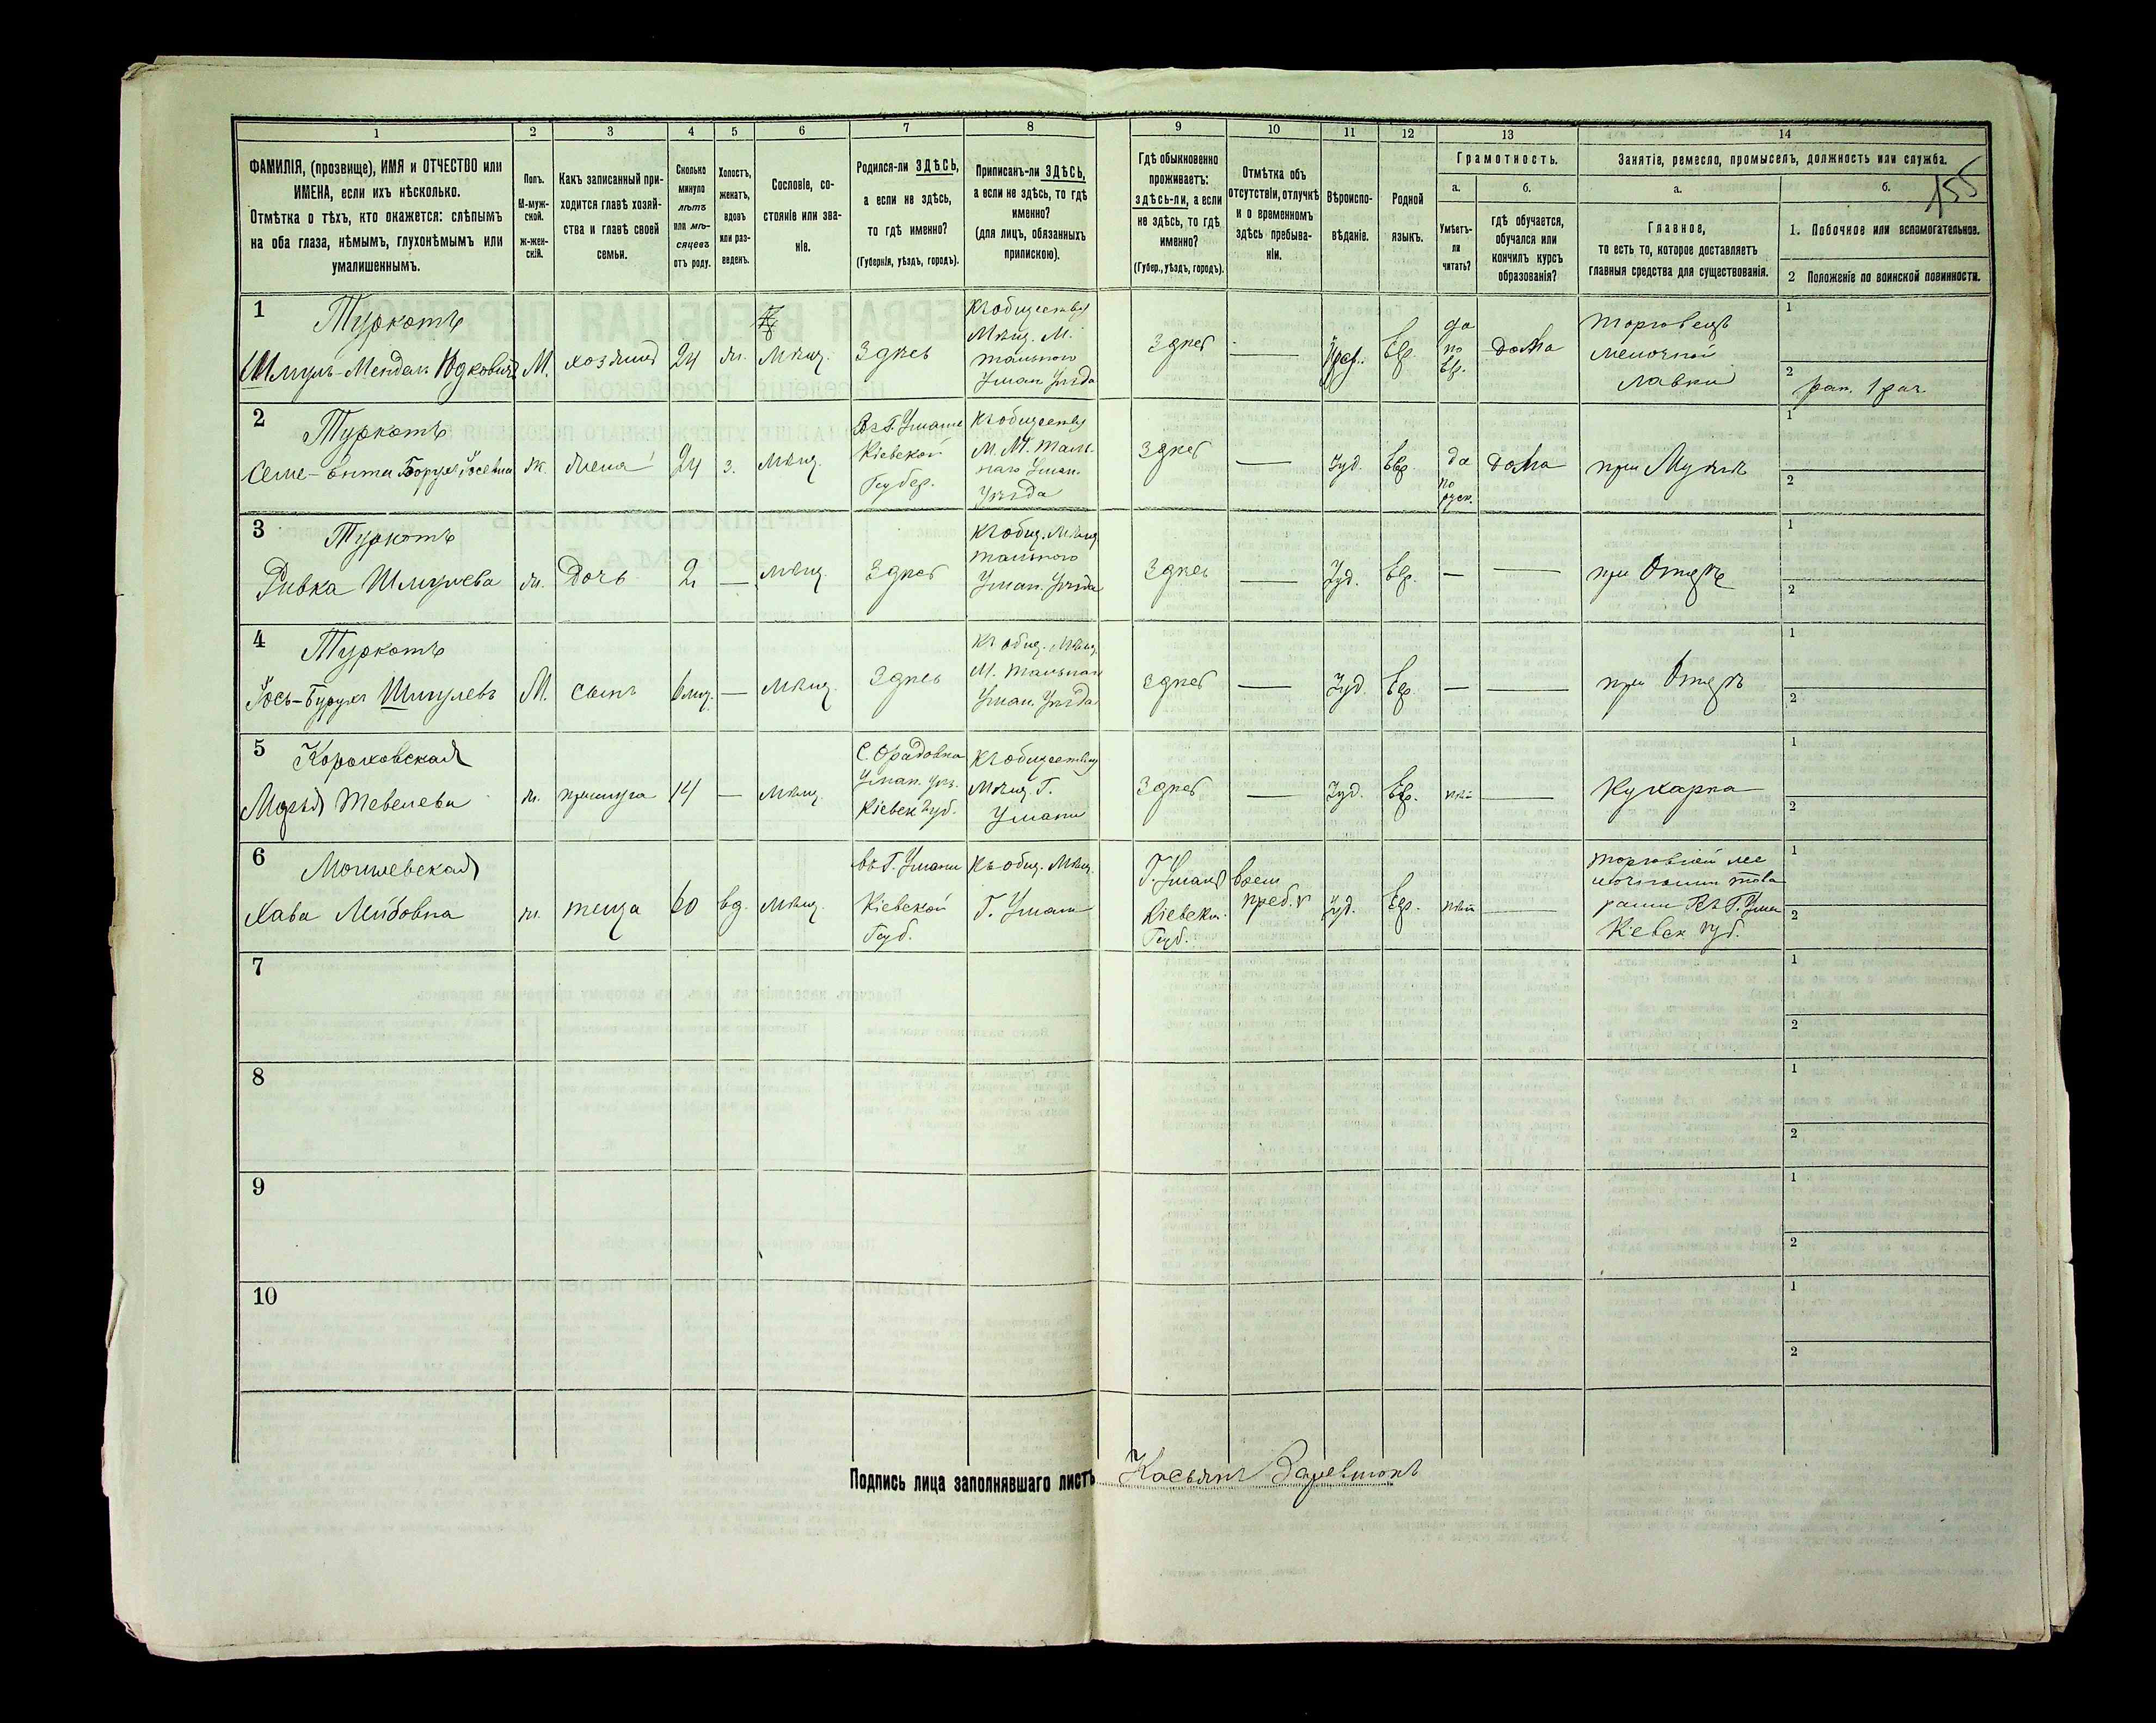 1 2 3 4 5 6 7 8 9 10 11 12 13 14
ФАМИЛІЯ, (прозвище), ИМЯ и ОТЧЕСТВО или
ИМЕНА, если ихъ нѣсколько.
Отмѣтка о тѣхъ, кто окажется: слѣпымъ
на оба глаза, нѣмымъ, глухонѣмымъ или
умалишеннымъ.
Полъ.
М-муж-
ской.
ж-жен-
скій.
Какъ записанный при-
ходится главѣ хозяй-
ства и главѣ своей
семьи.
Сколько
минуло
лѣтъ
или мѣ-
сяцевъ
отъ роду.
Холостъ,
женатъ,
вдовъ
или раз-
веденъ.
Сословіе, со-
стояніе или зва-
ніе.
Родился-ли ЗДѢСЬ,
а если не здѣсь,
то гдѣ именно?
(Губернія, уѣздъ, городъ).
Приписанъ-ли ЗДѢСЬ,
а если не здѣсь, то гдѣ
именно?
(для лицъ, обязанныхъ
припискою).
Гдѣ обыкновенно
проживаетъ:
здѣсь-ли, а если
не здѣсь, то гдѣ
именно?
(Губер., уѣздъ, городъ).
Отмѣтка объ
отсутствіи, отлучкѣ
и о временномъ
здѣсь пребыва-
ніи.
Вѣроиспо-
вѣданіе.
Родной
языкъ.
Грамотность.
а.
Умѣетъ-
ли
читать?
б.
гдѣ обучается,
обучался или
кончилъ курсъ
образованія?
Занятіе, ремесло, промыселъ, должность или служба.
а.
Главное,
то есть то, которое доставляетъ
главныя средства для существованія.
б.
155
1. Побочное или вспомогательное.
2 Положеніе по воинской повинности.
1
Туркотъ
Шмуль-Мендель Юдковичъ
М.
хозяинъ
24
ж.
мѣщ.
Здѣсь
Къ обществу
Мѣщ. М.
Тального
Уман. Уѣзда
Здѣсь
Іуд.
Евр.
да
по
Евр.
дома
Торговецъ
мелочной
лавки
1
2
2
Туркотъ
ж.
жена
24
з.
мѣщ.
Въ Г. Умани
Кіевской
Губер.
Къ обществу
М. М. Таль-
наго Уман.
Уѣзда
Здѣсь
Іуд.
Евр.
да
по
русск.
дома
при Мужѣ
1
2
3
Туркотъ
Ривка Шмулева
ж.
Дочь
2
мѣщ.
Здѣсь
Къ общ. Мѣщ
Тального
Уман. Уѣзда
Здѣсь
Іуд.
Евр.
при Отцѣ
1
2
4
Туркотъ
Іось-Бурухъ Шмулевъ
М.
сынъ
6 мѣс.
мѣщ.
Здѣсь
Къ общ. Мѣщ.
М. Тального
Уман. Уѣзда
Здѣсь
Іуд.
Евр.
при Отцѣ
1
2
5
Тевелева
ж.
прислуга
14
мѣщ.
Уман. Уѣз.
Кіевск Губ.
Къ обществу
Мѣщ Г.
Умани
Здѣсь
Іуд.
Евр.
нѣтъ
Кухарка
1
2
6
Могилевская
Хава Лейбовна
ж.
теща
60
вд.
мѣщ.
въ Г. Умани
Кіевской
Губ.
Къ общ. Мѣщ.
Г. Умани
Г. Умань
Кіевской
Губ.
врем
преб.
Іуд.
Евр.
нѣтъ
Кіевск губ.
1
2
7
1
2
8
1
2
9
1
2
10
1
2
Подпись лица заполнявшаго листъ
Касьянъ